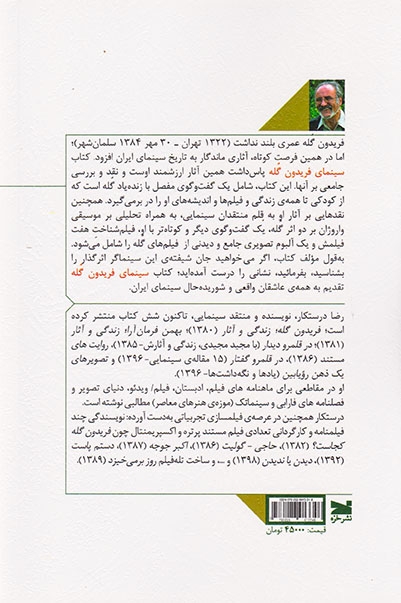 فریدون گُله عمری بلند نداشت (۱۳۲۲ تهران ـ ۳۰ مهر ۱۳۸۴ سلمان‌شهر)؛
اما در همین فرصتِ کوتاه، آثاری ماندگار به تاریخ سینمای ایران افزود. کتاب
سینمای فریدون گُله پاس‌داشت همین آثار ارزشمند اوست و نقد و بررسی
جامعی بر آنها. این کتاب، شامل یک گفت‌وگوی مفصل با زنده‌یاد گُله است که
از کودکی تا همه‌ی زندگی و فیلم‌ها و اندیشه‌های او را در برمی‌گیرد. همچنین
نقدهایی بر آثار او به قلم منتقدان سینمایی، به همراه تحلیلی بر موسیقی
واروژان بر دو اثر گُله، یک گفت‌وگوی دیگر و کوتاه‌تر با او، فیلم‌شناختِ هفت
فیلمش و یک آلبوم تصویری جامع و دیدنی از فیلم‌های گُله را شامل می‌شود.
به‌قول مؤلف کتاب، اگر می‌خواهید جان شیفته‌ی این سینماگر اثرگذار را
بشناسید، بفرمائید، نشانی را درست آمده‌اید؛ کتاب سینمای فریدون گُله
تقدیم به همه‌ی عاشقان واقعی و شوریده‌حال سینمای ایران.
رضا درستکار، نویسنده و منتقد سینمایی، تاکنون شش کتاب منتشر کرده
است؛ فریدون گُله؛ زندگی و آثار (۱۳۸۰)؛ بهمن فرمان‌آراء؛ زندگی و آثار
(۱۳۸۱)؛ در قلمرو دیدار (با مجید مجیدی، زندگی و آثارش- ۱۳۸۵)، روایت های
مستند (۱۳۸۶)، در قلمرو گفتار (۱۵ مقاله‌ی سینمایی- ۱۳۹۶) و تصویرهای
یک ذهن رؤیابین (یادها و نگه‌داشت‌ها- ۱۳۹۶).
او در مقاطعی برای ماهنامه های فیلم، ادبستان، فیلم/ ویدئو، دنیای تصویر و
فصلنامه های فارابی و سینماتک (موزه‌ی هنرهای معاصر) مطالبی نوشته است.
درستکار همچنین در عرصه‌ی فیلمسازی تجربیاتی به‌دست آورده: نویسندگی چند
فیلمنامه و کارگردانی تعدادی فیلم مستند پرتره و اکسپریمنتال چون فریدون گُله
کجاست؟ (۱۳۸۲)، حاجی - گولیت (۱۳۸۶)، اکبر جوجه (۱۳۸۷)، دستم پاست
(۱۳۹۲)، دیدن یا ندیدن (۱۳۹۸) و ...، و ساخت تله‌فیلم روز برمی‌خیزد (۱۳۸۹).
نشر خزه
قیمت: ۴۵۰۰۰ تومان